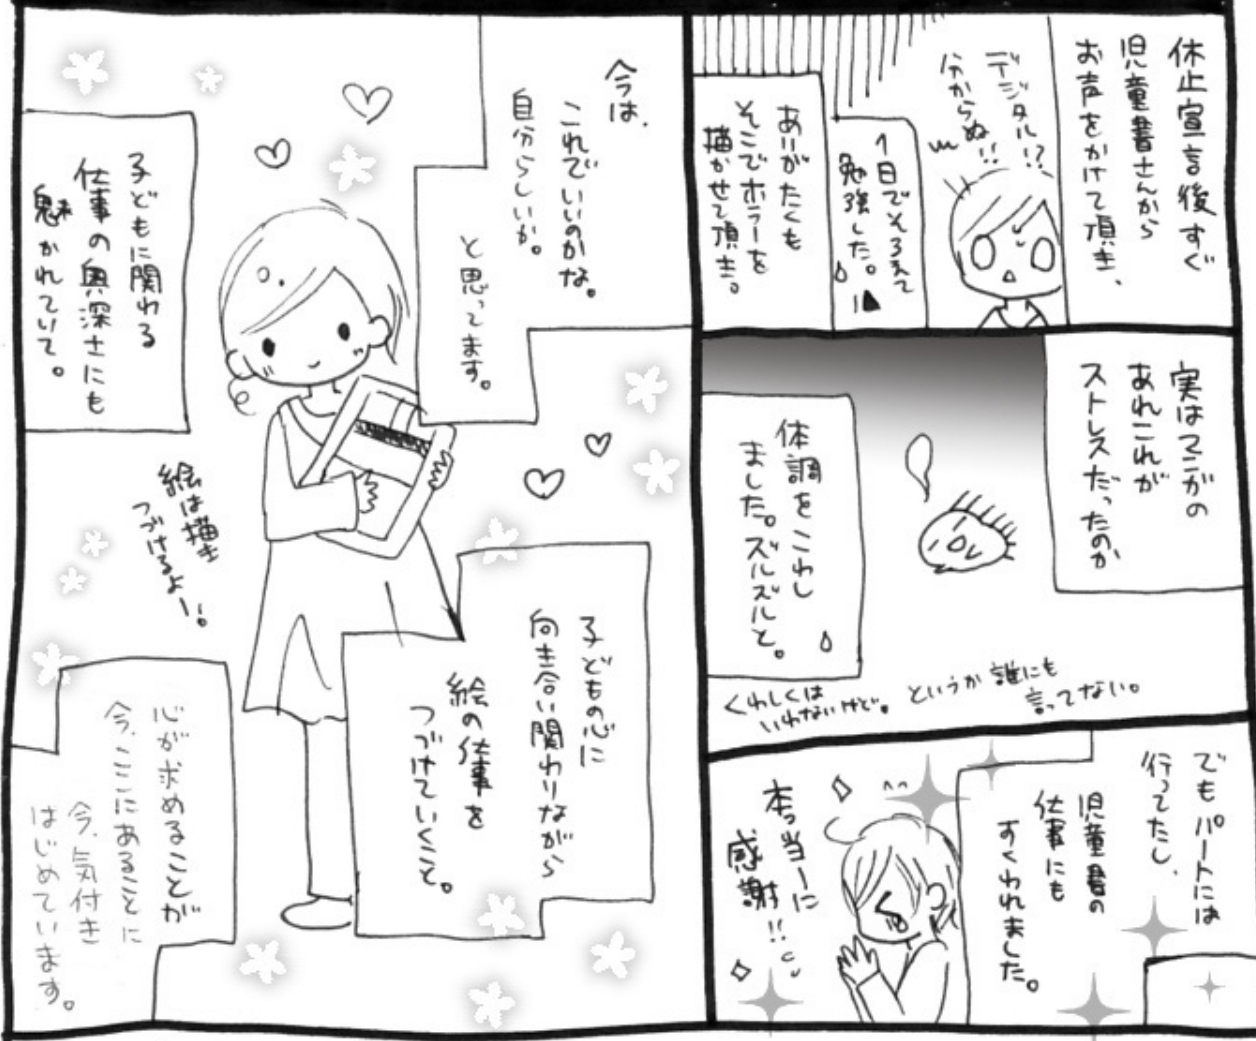 休止宣言後すぐ
児童書さんから
お声をかけて頂き、
デジタル!?
分からぬ!!
1日でそろえて
勉強した。
ありがたくも
そこでホラーを
描かせて頂き。
実はマンガの
あれこれが
ストレスだったのか
体調をこわし
ました。ズルズルと。
くわしくは
いわないけど。
というか誰にも
言ってない。
でもパートには
行ってたし、
児童書の
仕事にも
すくわれました。
本っ当ーに
感謝!!
今は、
これでいいのかな。
自分らしいか。
と思ってます。
子どもに関わる
仕事の奥深さにも
魅かれていて。
絵は描き
つづけるよー!
子どもの心に
向き合い関わりながら
絵の仕事を
つづけていくこと。
心が求めることが
今、ここにあることに
今、気付き
はじめています。